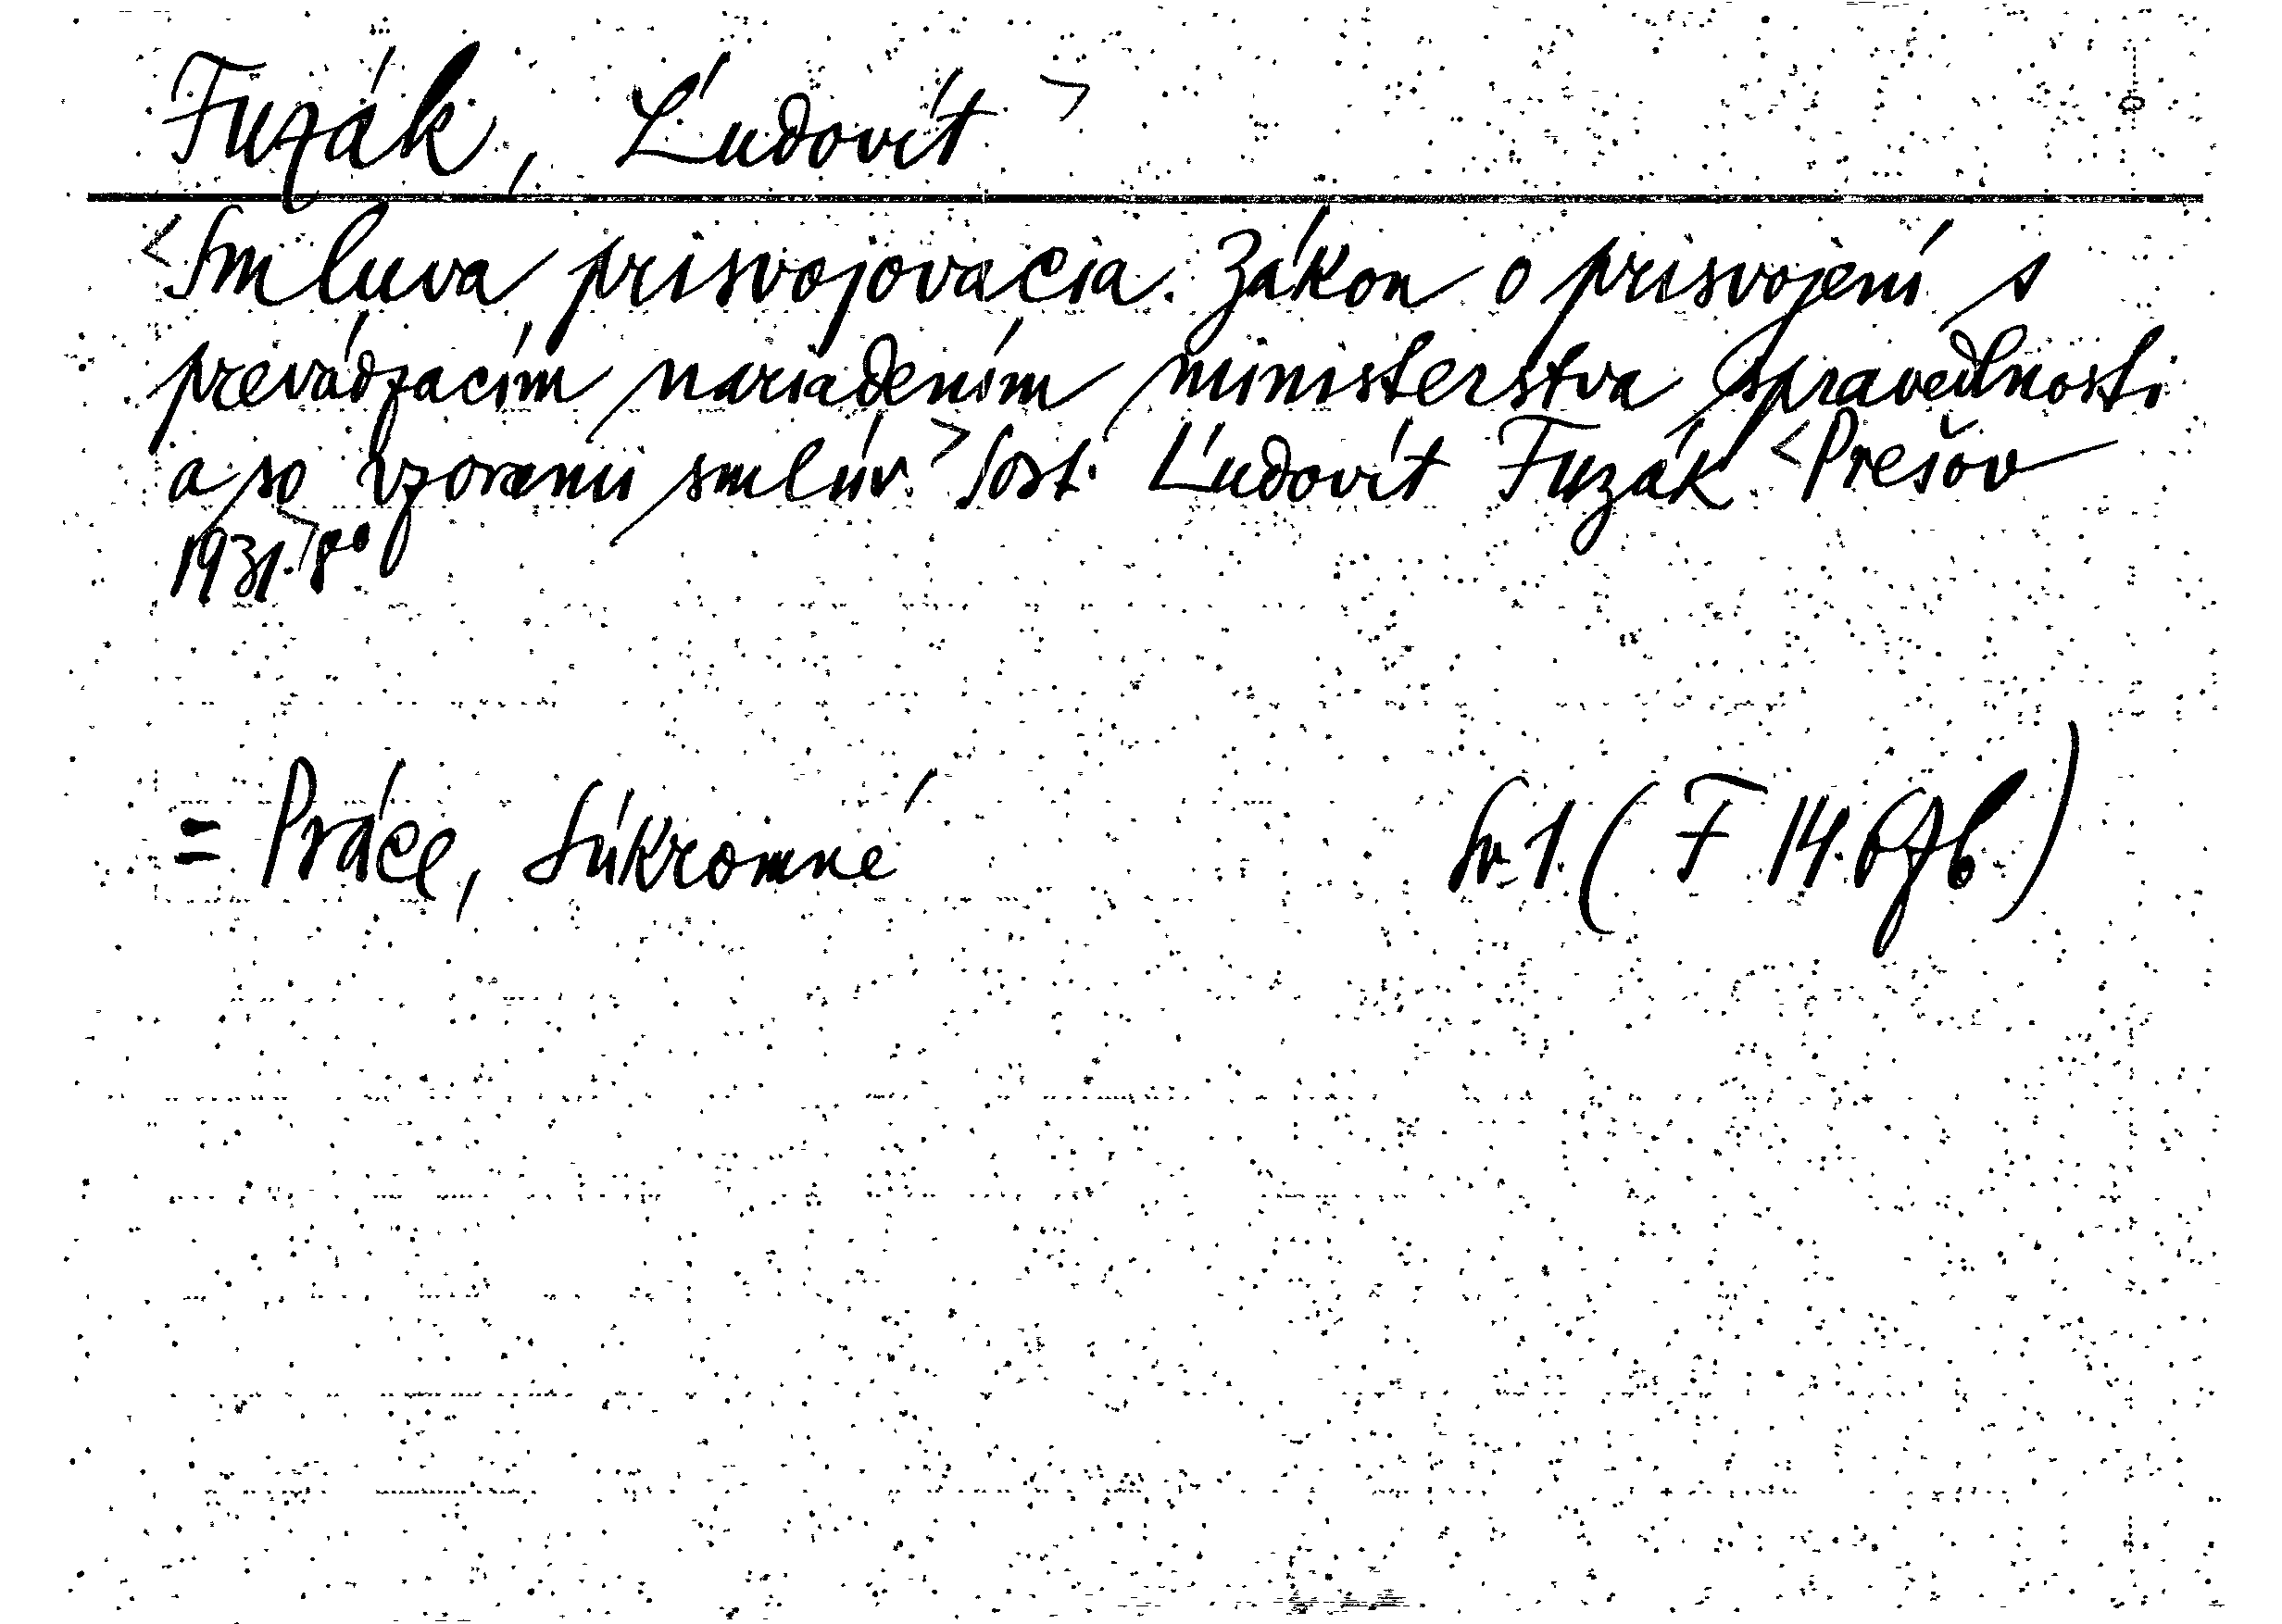 Fuzák, Ľudovít >
<Smluva prisvojovacia. Zákon o prisvojení s
prevádzacím nariadením ministerstva spravedlnosti
a so vzorami smlúv.> Sost. Ľudovít Fuzák. <Prešov
1931.> 8°
= Práce, Súkromné Sv. 1. (F 14.676)